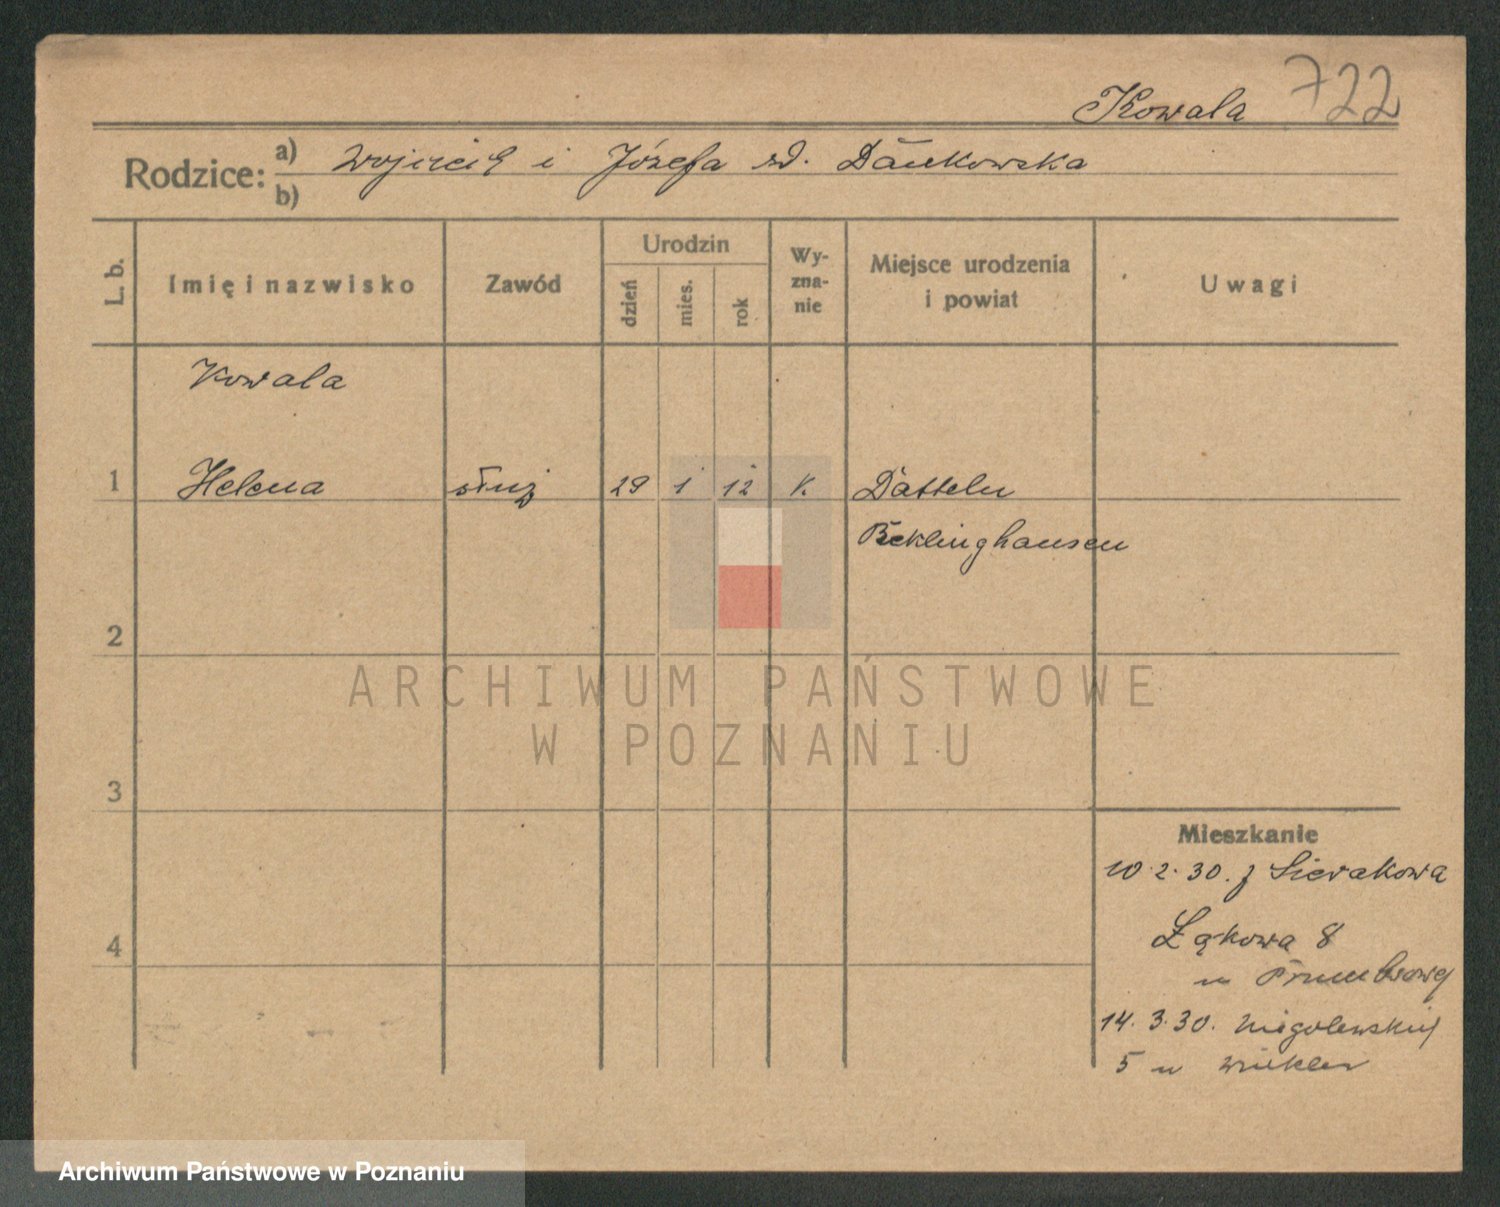 Kowala 722
Rodzice: a) Wojciech i Józefa zd. Dańkowska
b)
L. b. Imię i nazwisko Zawód Urodzin dzień mies. rok Wy-zna-nie Miejsce urodzenia i powiat Uwagi
Kowala
1 Helena służ 29 1 12 k. Datteln
Recklinghausen
2
ARCHIWUM PAŃSTWOWE
W POZNANIU
3
Mieszkanie
10.2.30. z Sierakowa
4 Łąkowa 8
u
14.3.30. Niegolewskich
5 u Winkler
Archiwum Państwowe w Poznaniu